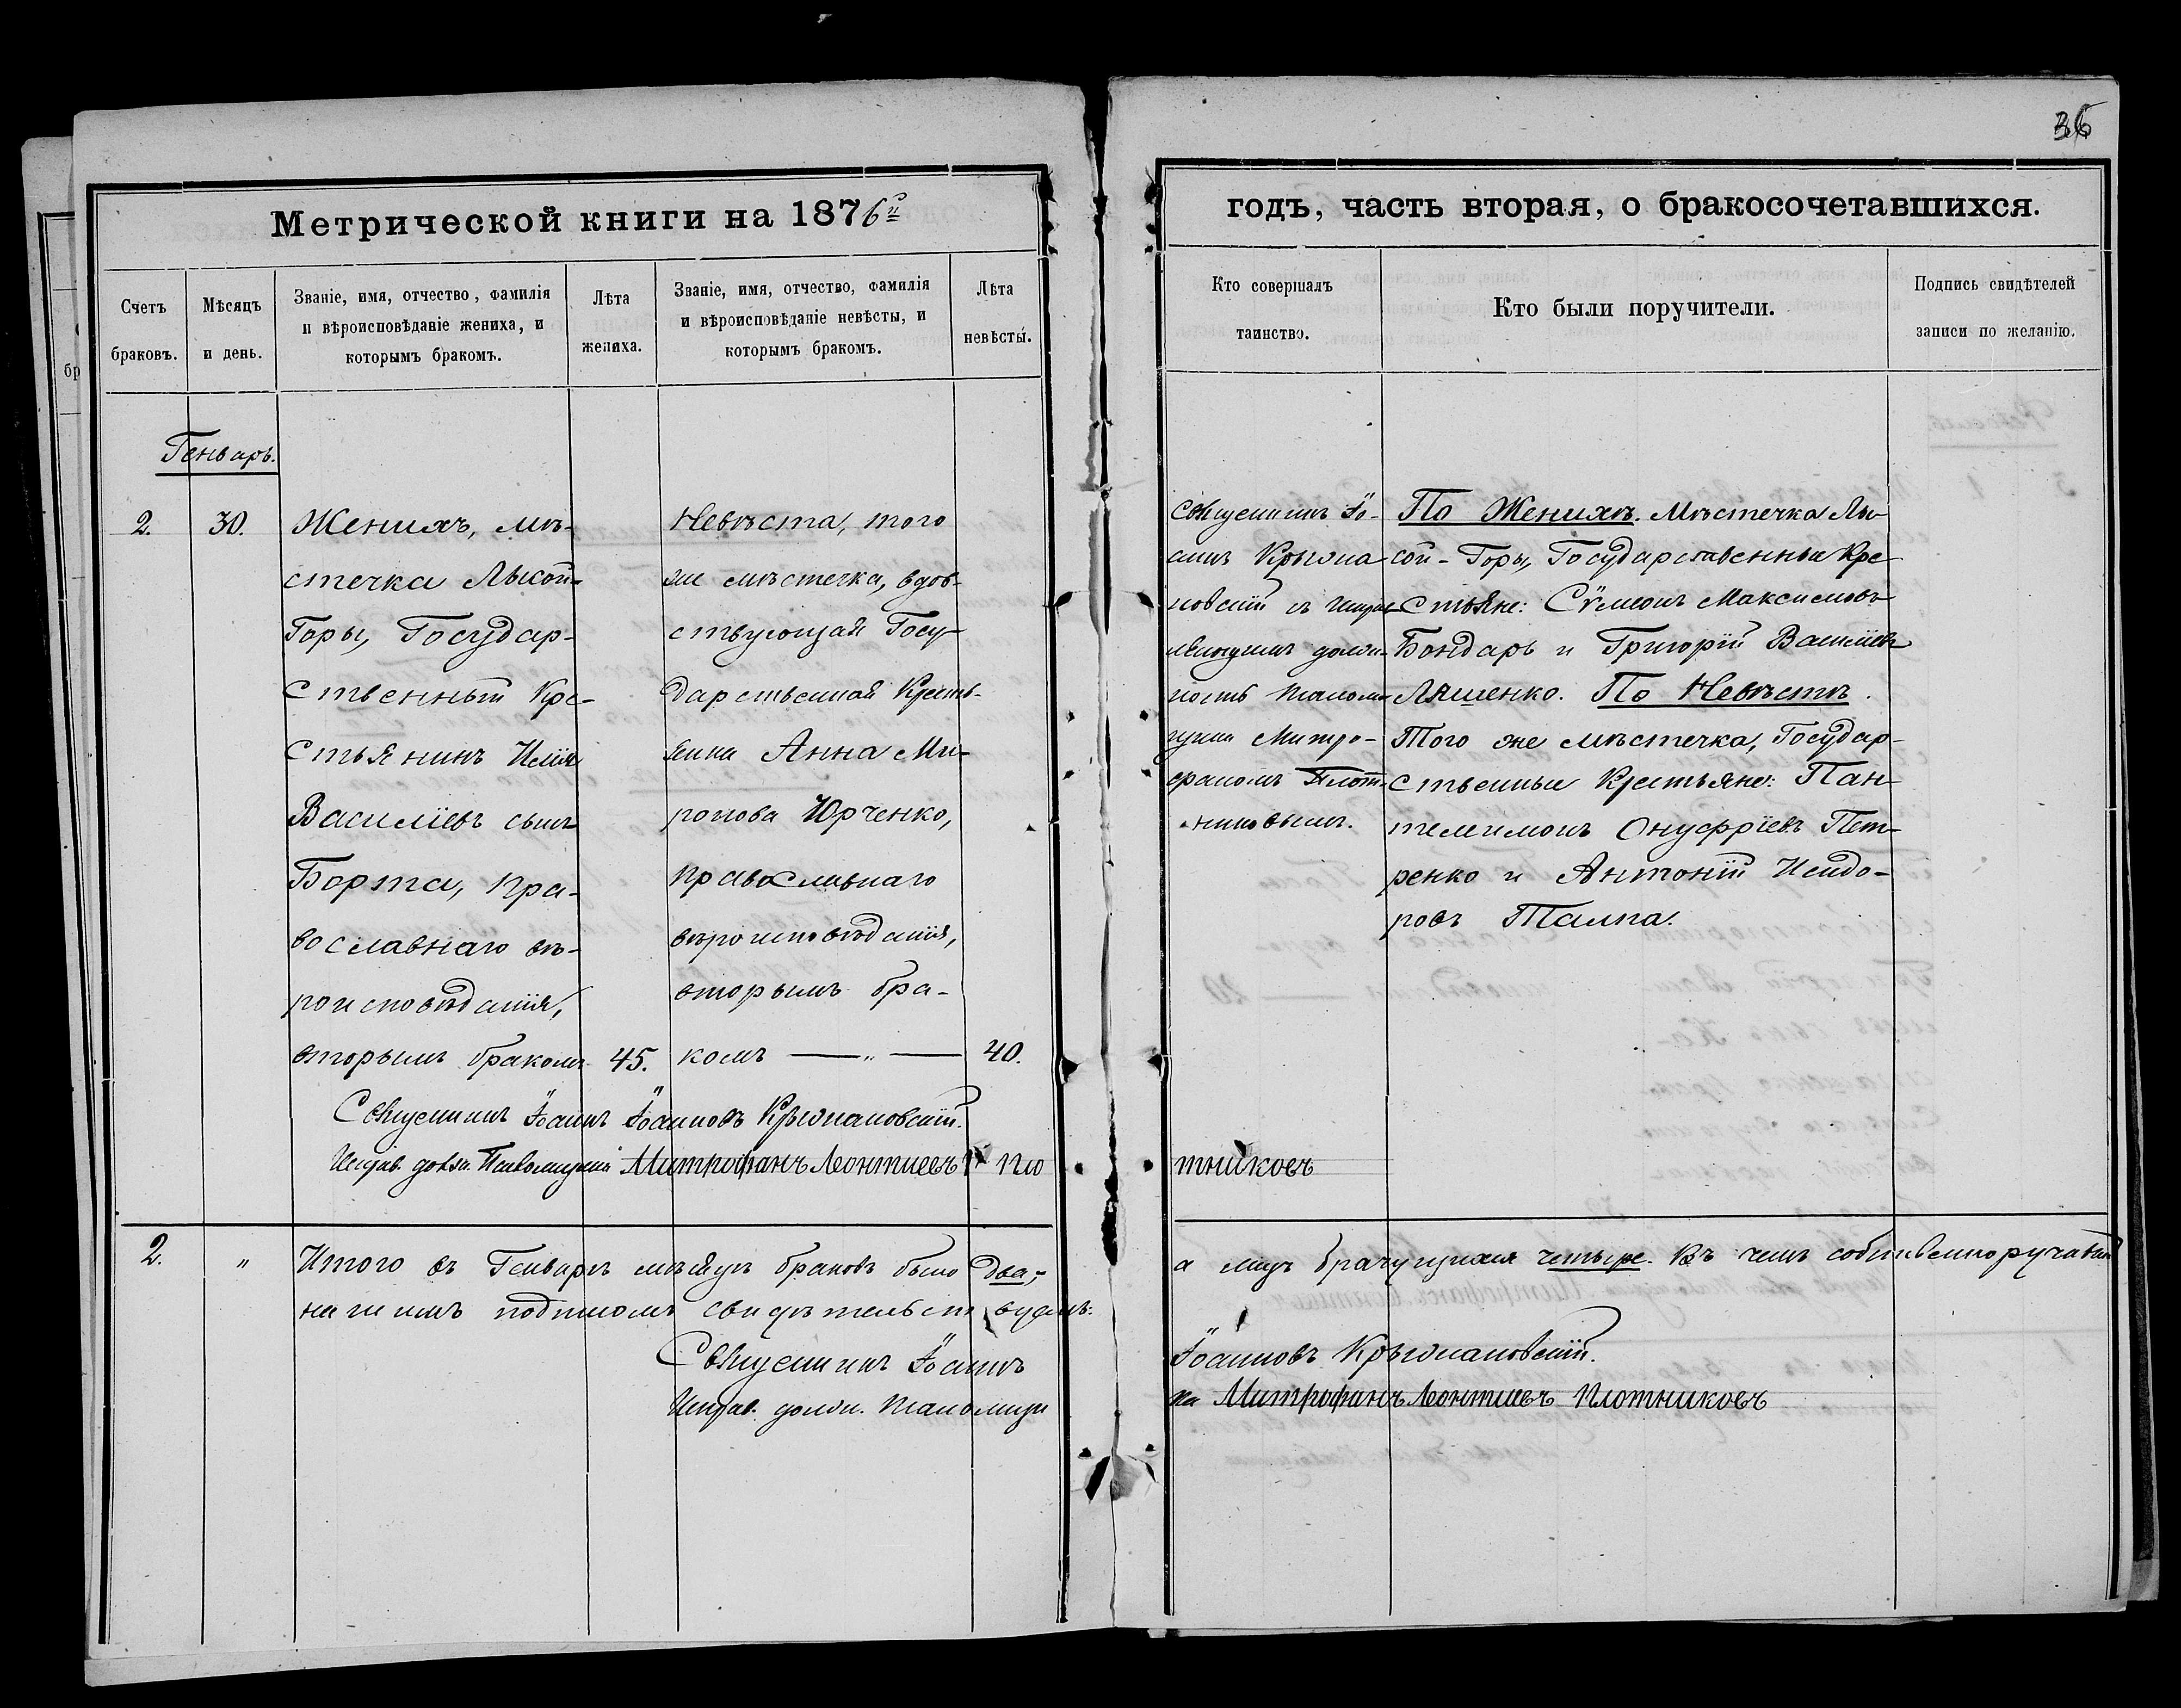 36
Метрической книги на 1876й
годъ, часть вторая, о бракосочетавшихся.
Счетъ браковъ.
Мѣсяцъ и день.
Званіе, имя, отчество, фамилія
и вѣроисповѣданіе жениха, и
которымъ бракомъ.
Лѣта
жениха.
Званіе, имя, отчество, фамилія
и вѣроисповѣданіе невѣсты, и
которымъ бракомъ.
Лѣта
невѣсты.
Кто совершалъ
таинство.
Кто были поручители.
Подпись свидѣтелей
записи по желанію.
Генварь.
2.
30.
Женихъ, мѣ-
стечка Лысой-
Горы, Государ-
ственный Кре-
стьянинъ Илія
Василіевъ сынъ
Борта, пра-
вославнаго вѣ-
роисповѣданія,
вторымъ бракомъ
45.
Невѣста, того
же мѣстечка, вдов-
ствующая Госу-
дарственная Кресть-
янка Анна Ми-
ронова Юрченко,
православнаго
вѣроисповѣданія,
вторымъ бра-
комъ — „ —
40.
Священникъ Іо-
аннъ Крыжа-
новскій съ Исправ-
ляющимъ долж-
ность Псалом-
щика Митро-
фаномъ Плот-
никовымъ.
По Женихѣ. Мѣстечка Лы-
сой-Горы, Государственные Кре-
стьяне: Сѵмеонъ Максимовъ
Бондарь и Григорій Василіевъ
Ляшенко. По Невѣстѣ.
Того же мѣстечка, Государ-
ственные Крестьяне: Пан-
телимонъ Онуфріевъ Пет-
ренко и Антоній Исидо-
ровъ Талпа.
Священникъ Іоаннъ Іоанновъ Крыжановскій.
Исправ. долж. Псаломщика Митрофанъ Леонтиевъ Пло
тниковъ
2.
„
Итого въ Генварѣ мѣсяцѣ браковъ было два;
а лицъ брачущихся четыре. Въ чемъ собственноручнымъ
нашимъ подписомъ свидѣтельствуемъ:
Священникъ Іоаннъ
Іоанновъ Крыжановскій.
Исправ. долж. Псаломщи
ка Митрофанъ Леонтиевъ Плотниковъ